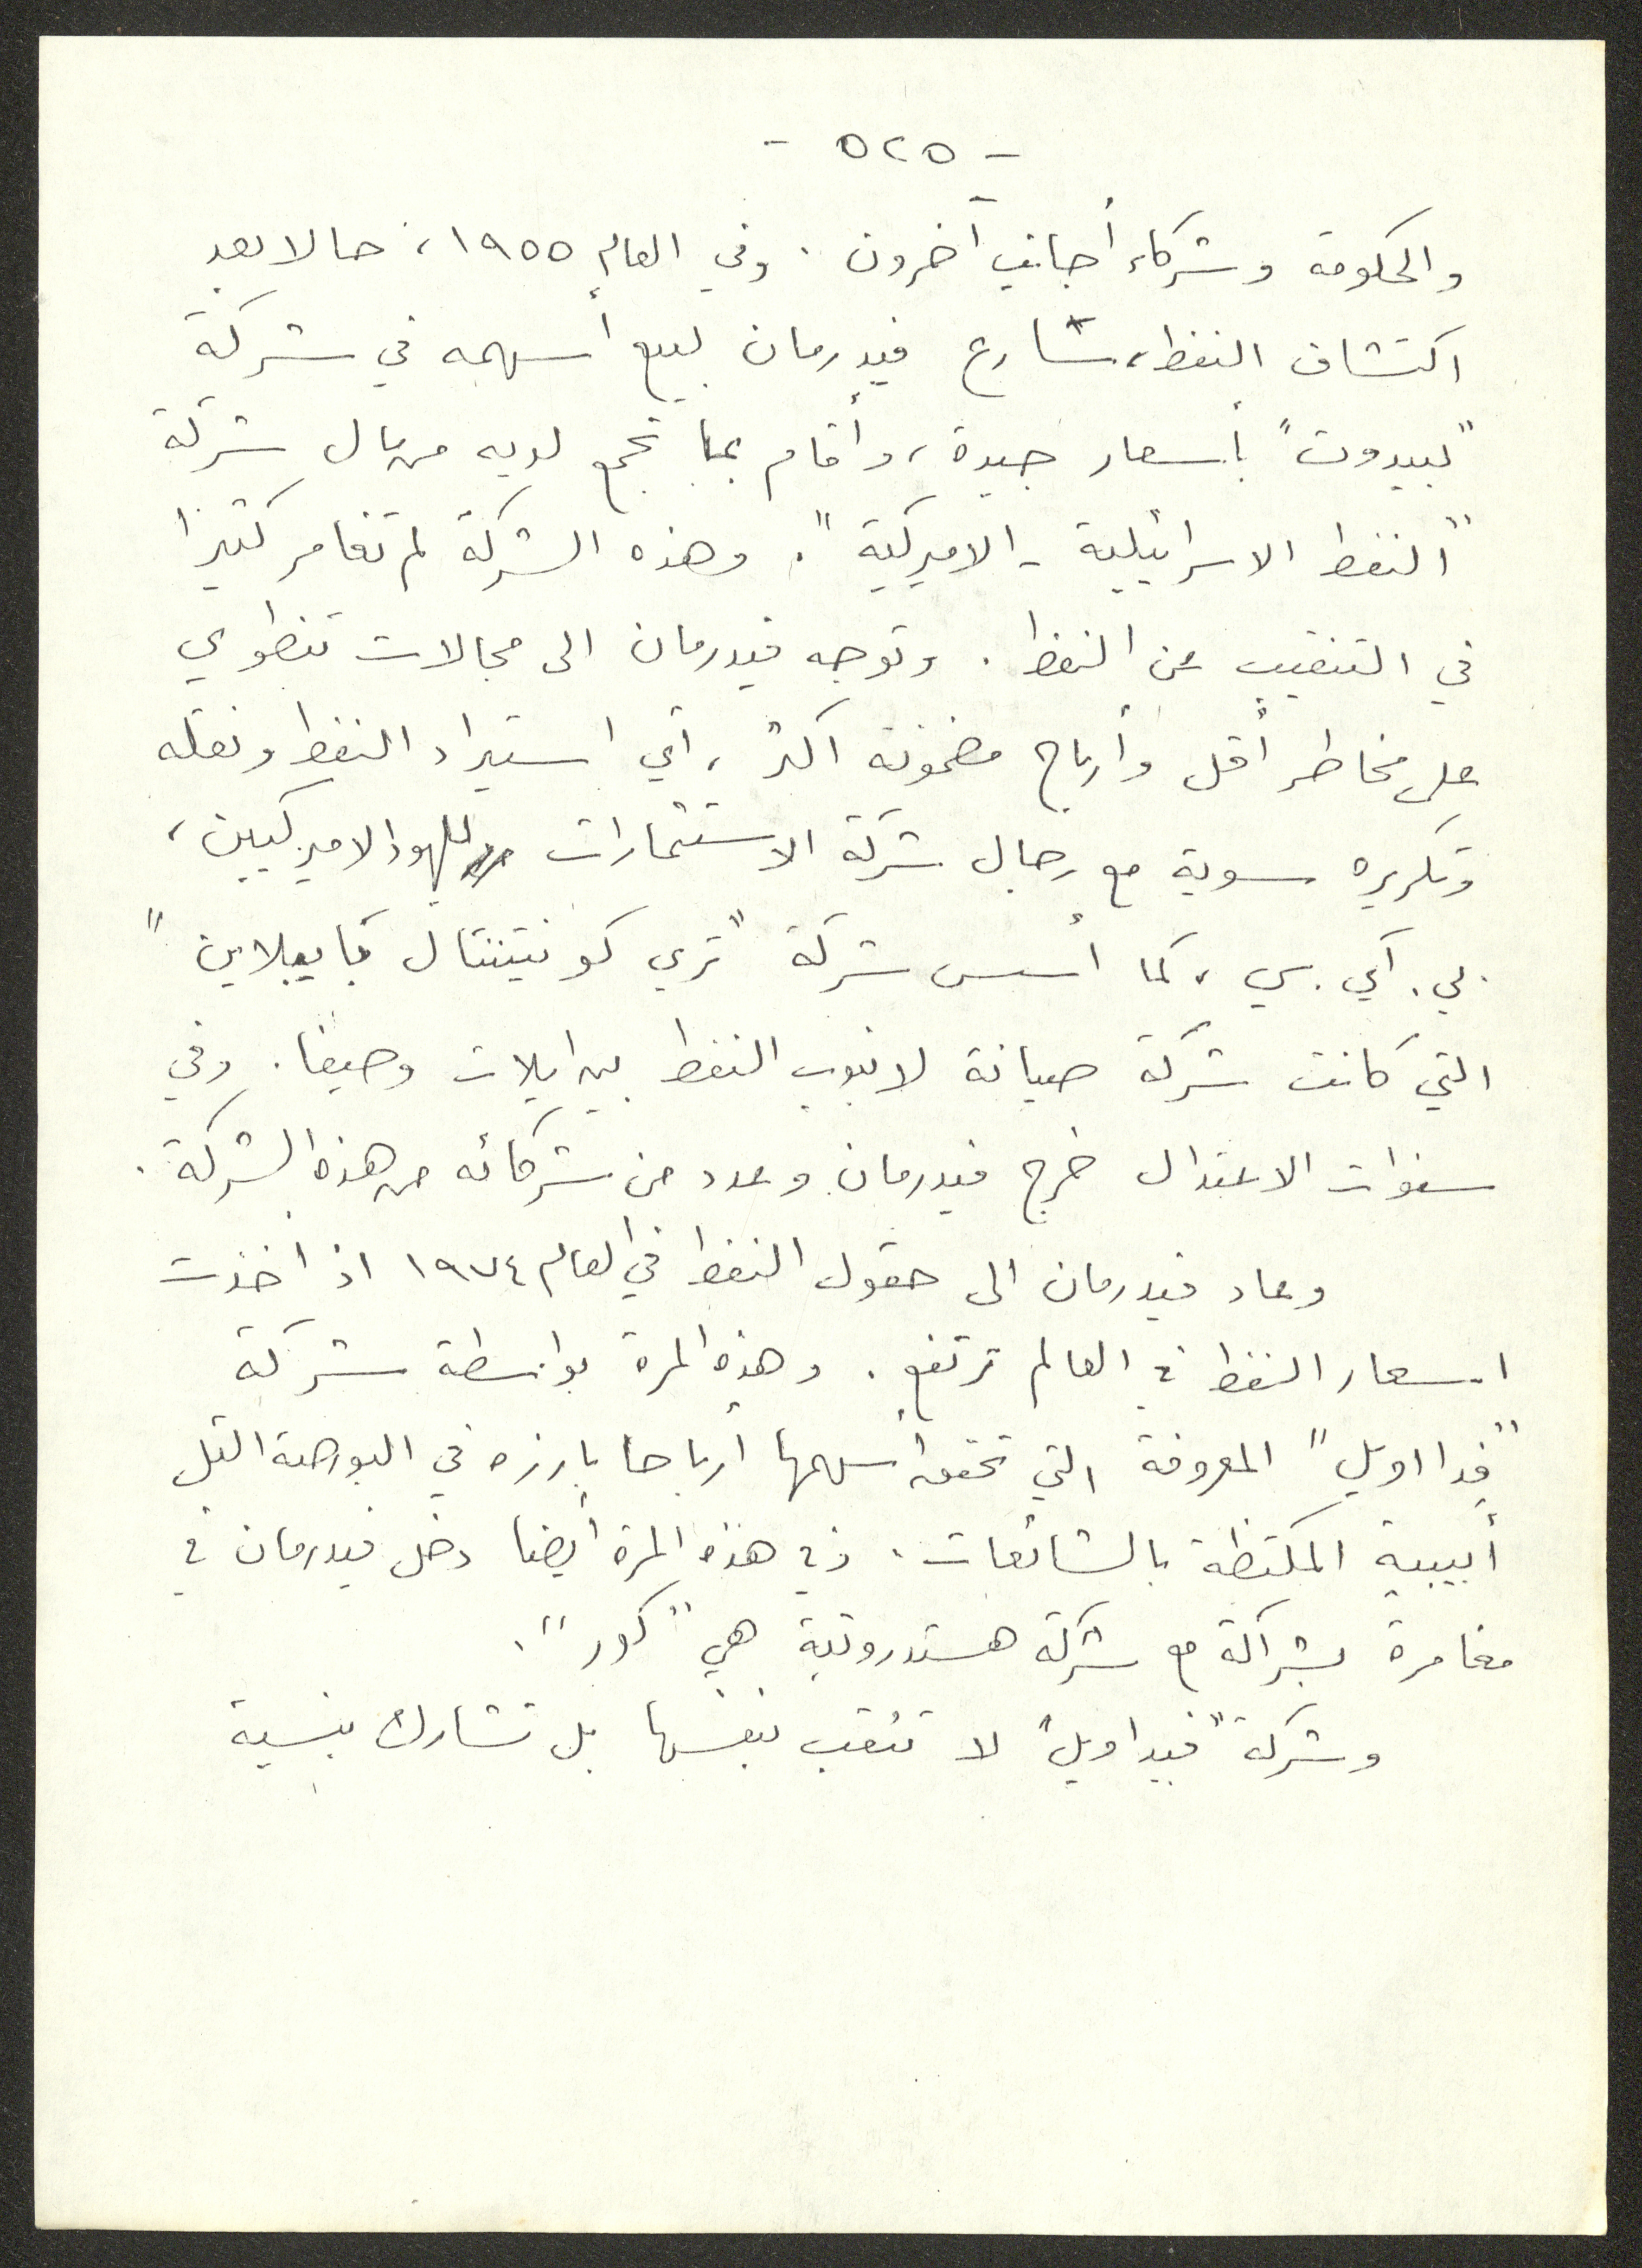 - ٥٢٥ -
والحكومة وشركاء أجانب آخرون . وفي العام ١٩٥٥، حالا بعد
اكتشاف النفط، سارع فيدرمان لبيع أسهمه في شركة
"لبيدوت" بأسعار جيدة، وأقام بما تجمع لديه من مال شركة
"النفط الاسرائيلية - الاميركية". وهذه الشركة لم تغامر كثيرا
في التنقيب عن النفط . وتوجه فيدرمان الى مجالات تنطوي
على مخاطر أقل وأرباح مضمونة اكثر ، أي استيراد النفط ونقله
وتكريره سوية مع رجال شركة الاستثمارات لليهود الاميركيين،
بي. آي. سي، كما أسس شركة "تري كونتيننتال بايبلاين"
التي كانت شركة صيانة لانبوب النفط بين ايلات وحيفا. وفي
سنوات الاعتدال خرج فيدرمان وعدد من شركائه من هذه الشركة .
وعاد فيدرمان الى حقول النفط في العام ١٩٧٤ اذ أخذت
اسعار النفط في العالم ترتفع . وهذه المرة بواسطة شركة
"فدا اويل" المعروفة التي تحقق أسهمها أرباحا بارزه في البورصة التل
أبيبية المكتظة بالشائعات . في هذه المرة أيضا دخل فيدرمان في
مغامرة بشراكة مع شركة هستدروتية هي "كور" .
وشركة "فيدا ويل" لا تنقب بنفسها بل تشارك بنسبة